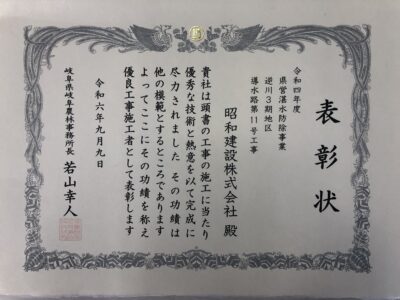 表彰状
令和四年度
県営湛水防除事業
逆川３期地区
導水路第11号工事
昭和建設株式会社 殿
貴社は頭書の工事の施工に当たり
優秀な技術と熱意を以て完成に
尽力されました その功績は
他の模範とするところであります
よって、ここにその功績を称え
優良工事施工者として表彰します
令和六年九月九日
岐阜県岐阜農林事務所長 若山幸人